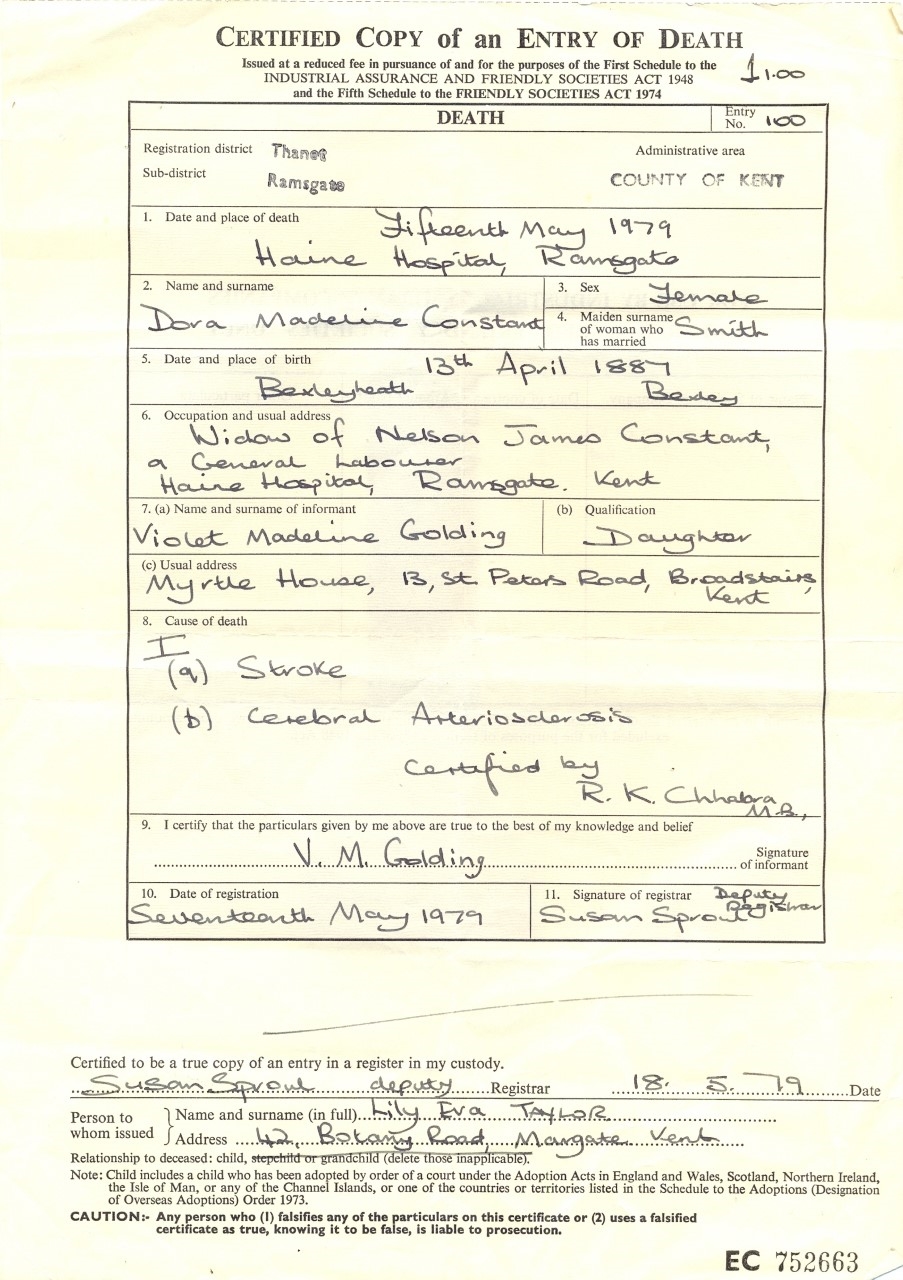 CERTIFIED COPY of an ENTRY OF DEATH
Issued at a reduced fee in pursuance of and for the purposes of the First Schedule to the
INDUSTRIAL ASSURANCE AND FRIENDLY SOCIETIES ACT 1948
and the Fifth Schedule to the FRIENDLY SOCIETIES ACT 1974
£1.00
DEATH
Entry No. 100
Registration district Thanet
Administrative area
Sub-district Ramsgate
COUNTY OF KENT
1. Date and place of death Fifteenth May 1979
Haine Hospital, Ramsgate
2. Name and surname
Dora Madeline Constant
3. Sex Female
4. Maiden surname of woman who has married Smith
5. Date and place of birth 13th April 1887
Bexleyheath Bexley
6. Occupation and usual address
Widow of Nelson James Constant,
a General Labourer
Haine Hospital, Ramsgate. Kent
7. (a) Name and surname of informant
Violet Madeline Golding
(b) Qualification
Daughter
(c) Usual address
Myrtle House, 13, St. Peters Road, Broadstairs,
Kent
8. Cause of death
I
(a) Stroke
(b) Cerebral Arteriosclerosis
Certified by
R. K. Chhabra
M.B.,
9. I certify that the particulars given by me above are true to the best of my knowledge and belief
V. M. Golding
Signature
of informant
10. Date of registration
Seventeenth May 1979
11. Signature of registrar Deputy
Registrar
Susan Sproul
Certified to be a true copy of an entry in a register in my custody.
Susan Sproul deputy Registrar 18. 5. 79 Date
Person to whom issued
Name and surname (in full) Lily Eva TAYLOR
Address 42, Botany Road, Margate Kent
Relationship to deceased: child, stepchild or grandchild (delete those inapplicable).
Note: Child includes a child who has been adopted by order of a court under the Adoption Acts in England and Wales, Scotland, Northern Ireland,
the Isle of Man, or any of the Channel Islands, or one of the countries or territories listed in the Schedule to the Adoptions (Designation
of Overseas Adoptions) Order 1973.
CAUTION:- Any person who (1) falsifies any of the particulars on this certificate or (2) uses a falsified
certificate as true, knowing it to be false, is liable to prosecution.
EC 752663